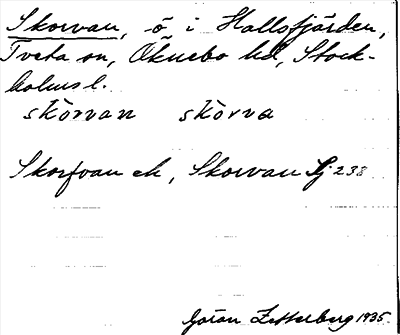 Skorvan, ö i Hallsfjärden,
Tveta sn, Öknebo hd, Stock-
holms l.
skòrvan skòrva
Skorfvan ek, Skorvan Sj 238
Göran Zetterberg 1935